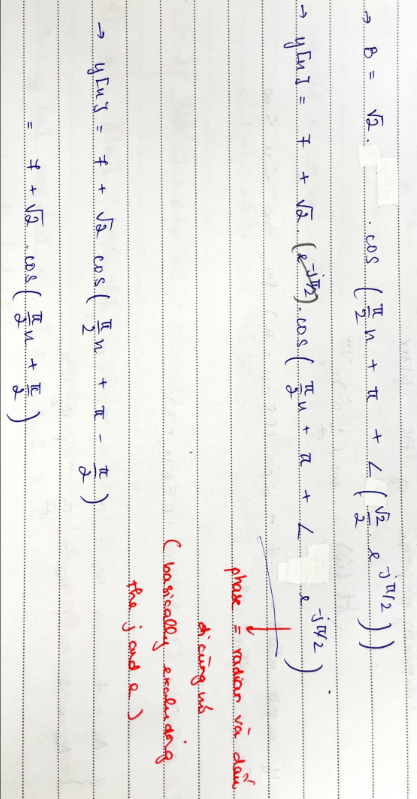 → B = √2 . . cos ( π/2 n + π + ∠ ( √2/2 e^-jπ/2 ) )
→ y[n] = 7 + √2 (e^-jπ/2) . cos ( π/2 n + π + ∠ e^-jπ/2 )
phase = radian và dấu
đi cùng nó
( basically excluding
the j and e )
→ y[n] = 7 + √2 cos ( π/2 n + π - π/2 )
= 7 + √2 . cos ( π/2 n + π/2 )